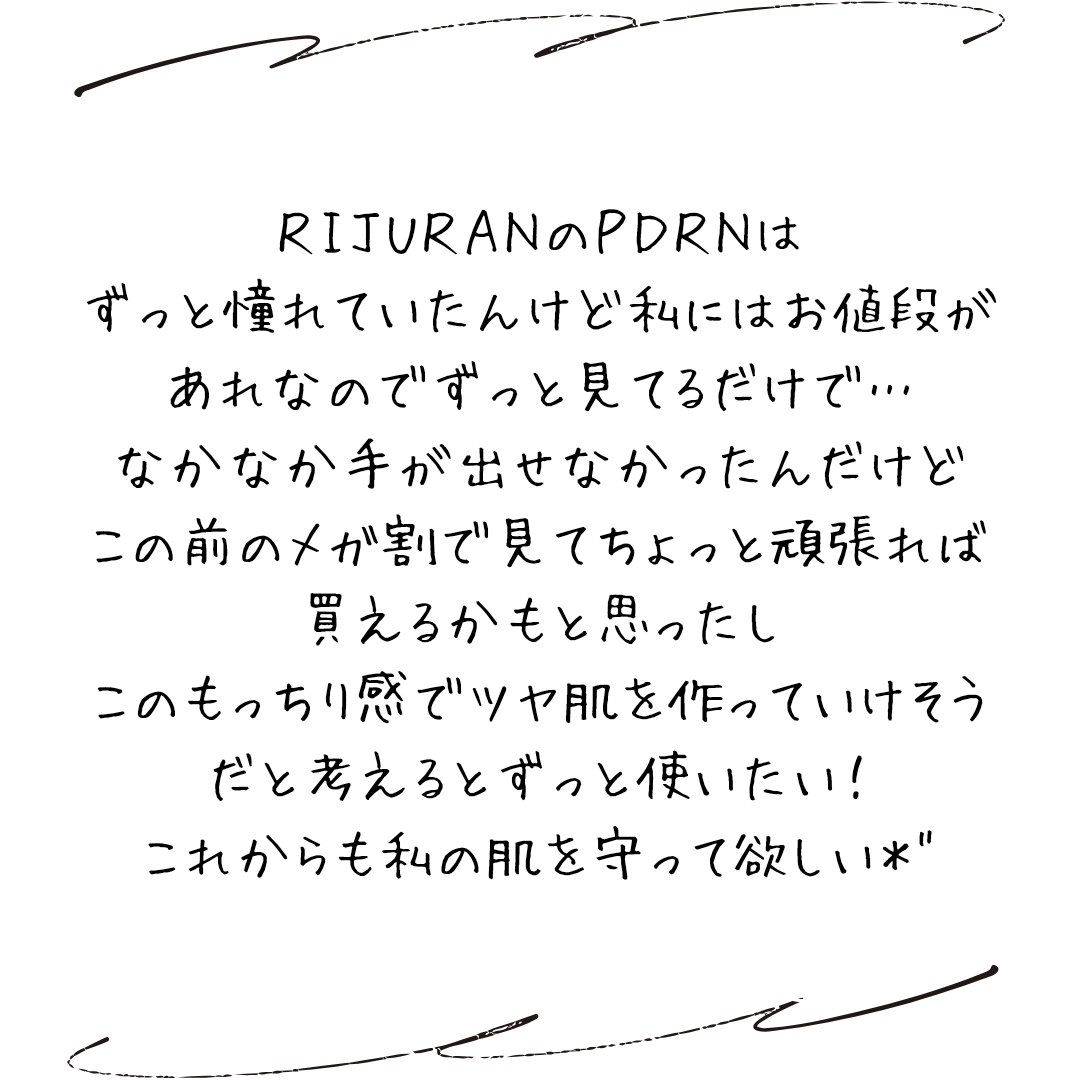 RIJURANのPDRNは
ずっと憧れていたんけど私にはお値段が
あれなのでずっと見てるだけで…
なかなか手が出せなかったんだけど
この前のメガ割で見てちょっと頑張れば
買えるかもと思ったし
このもっちり感でツヤ肌を作っていけそう
だと考えるとずっと使いたい!
これからも私の肌を守って欲しい*"